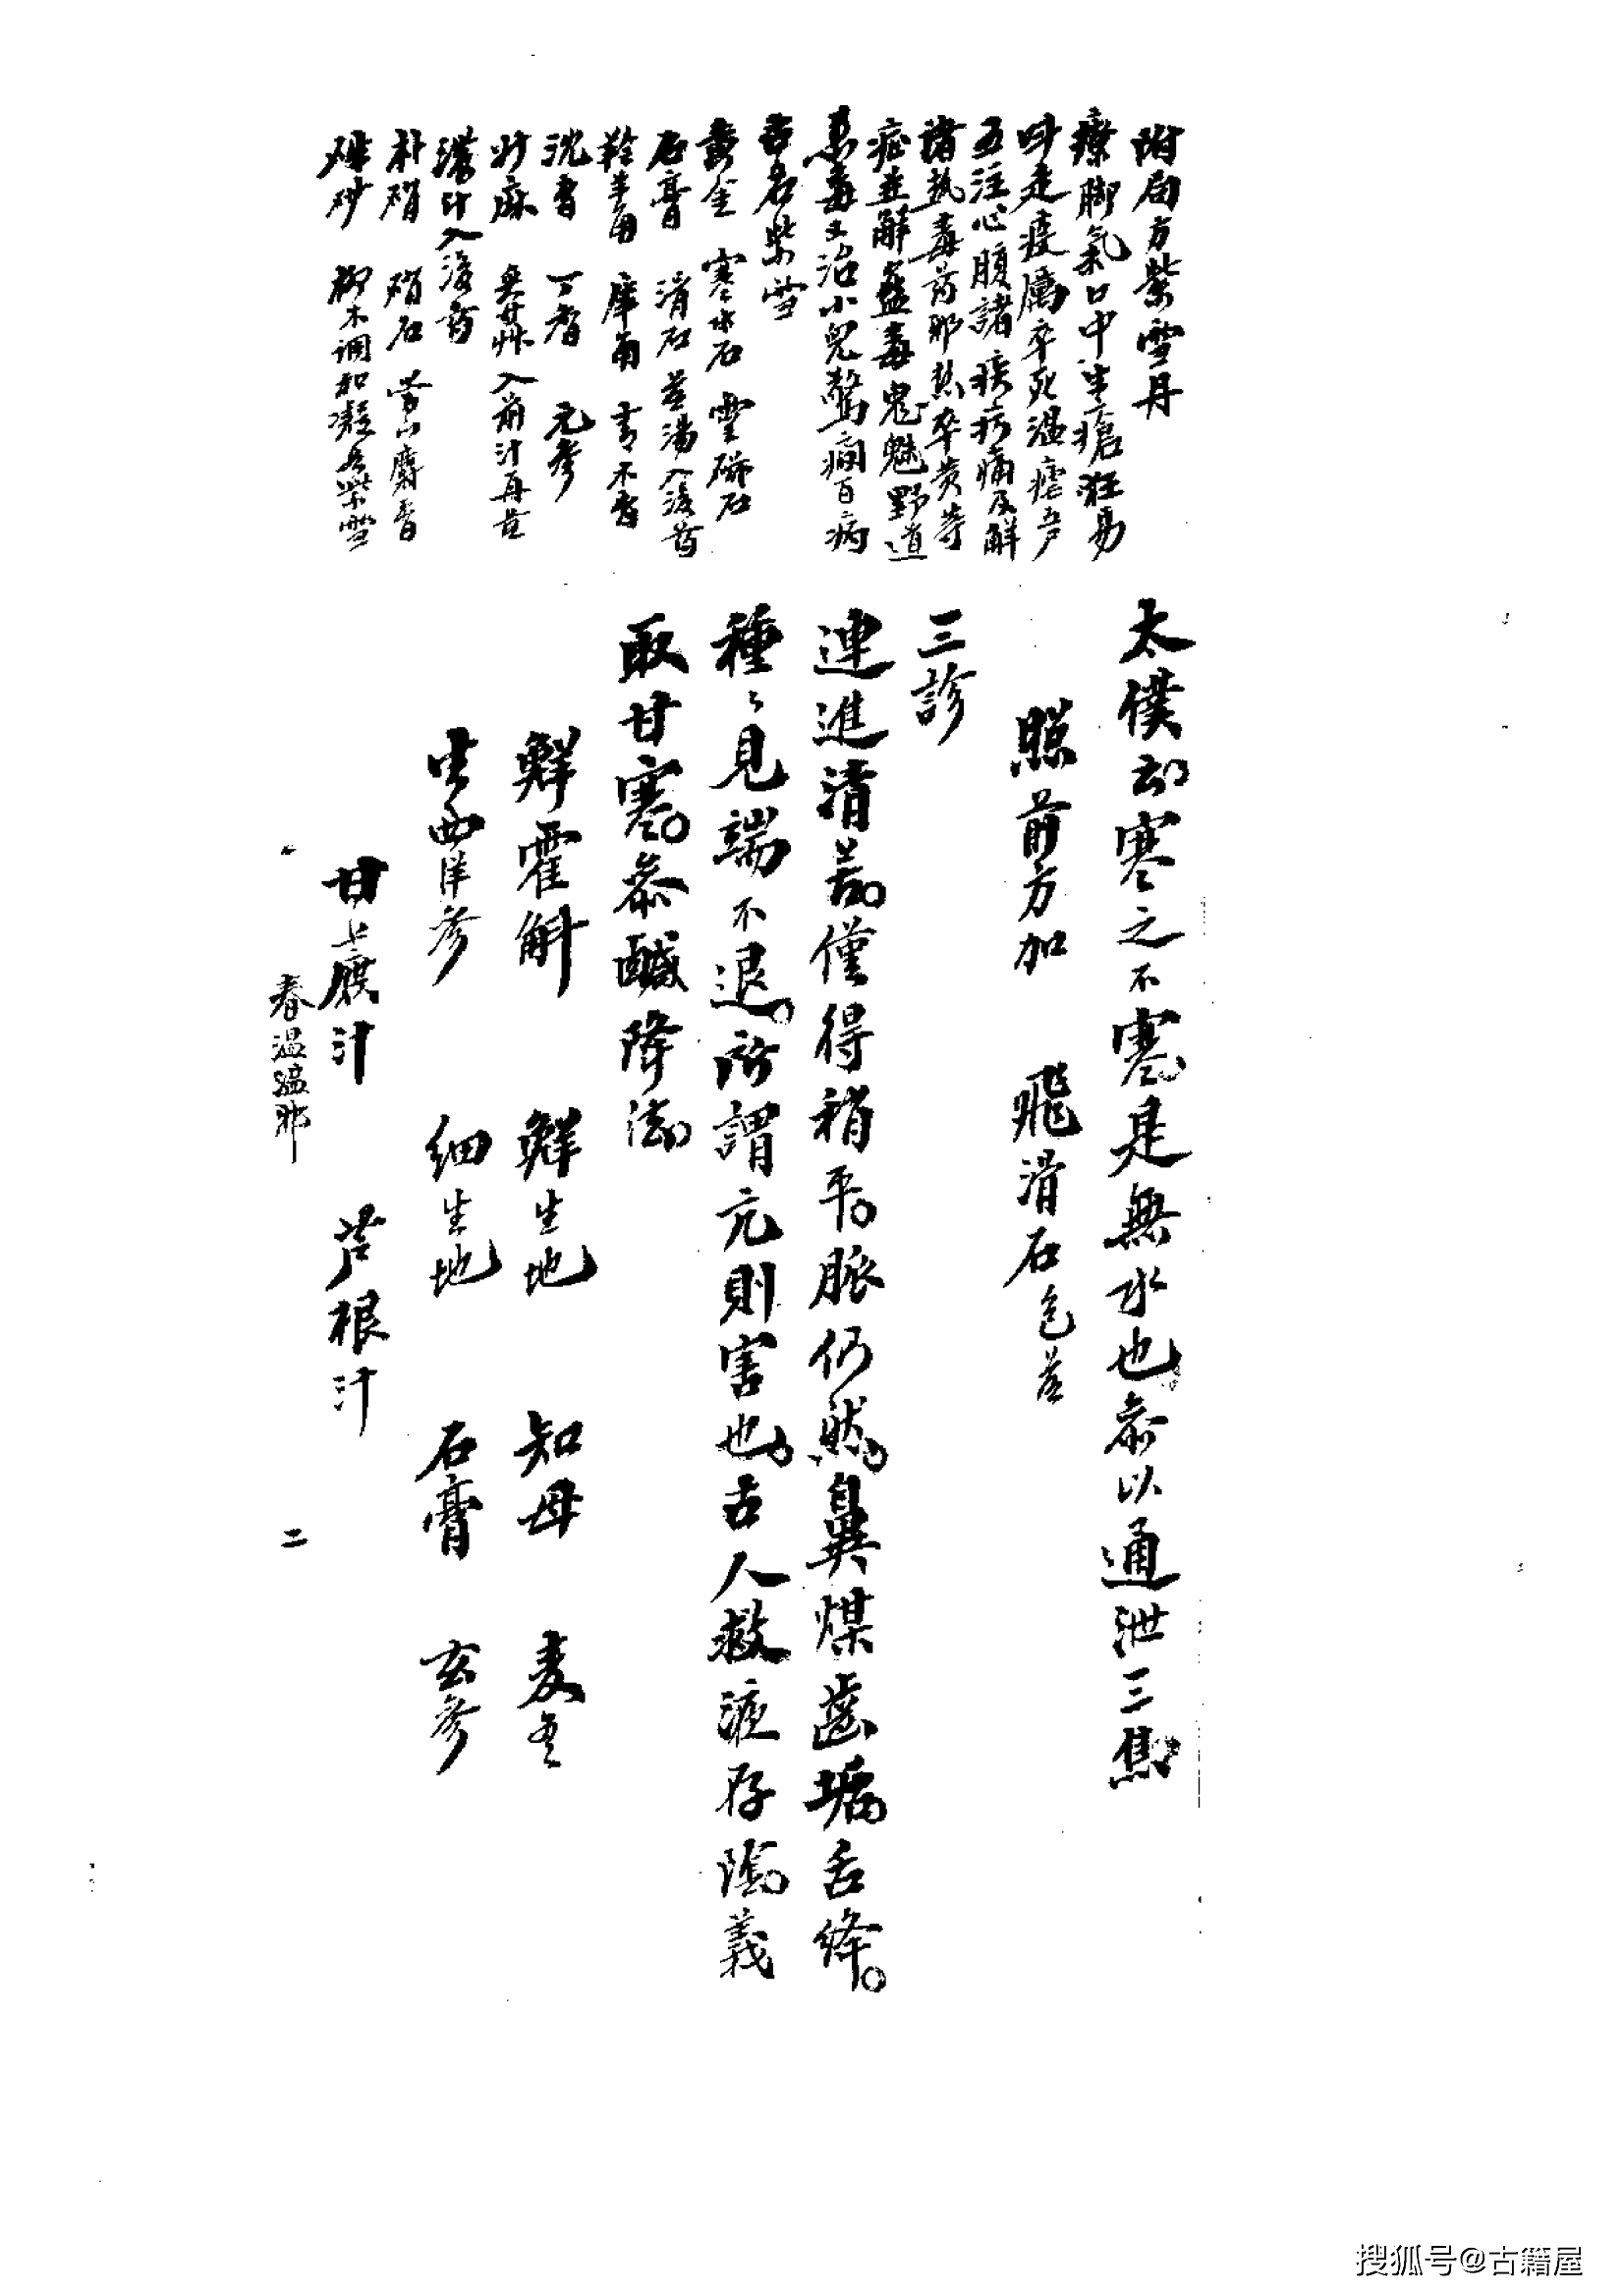 附局方紫雪丹
療脚氣口中生瘡狂易
叫走疫厲卒死温瘧
五注心腹諸疾痛及解
諸热毒药邪热卒黄等
症並解蠱毒鬼魅野道
热毒又治小兒驚癇百病
古名紫雪
黄金 寒水石 磁石
石膏 滑石 煮湯入後药
羚羊角 犀角 青木香
沈香 丁香 元参
升麻 入前汁再煮
濃汁入後药
朴硝 硝石 麝香
硃砂 柳木調和凝成紫雪
太僕云寒之不寒是無水也泰以通泄三焦
照前方加 飛滑石包煎
三診
連進清劑僅得稍平脈仍然鼻煤齒垢舌絳
種種見端不退所謂亢則害也古人救液存陰義
取甘寒叅鹹降法
鮮霍斛 鮮生地 知母 麦冬
西洋参 细生地 石膏 玄参
甘蔗汁 芦根汁
春温温邪
二
搜狐号@古籍屋